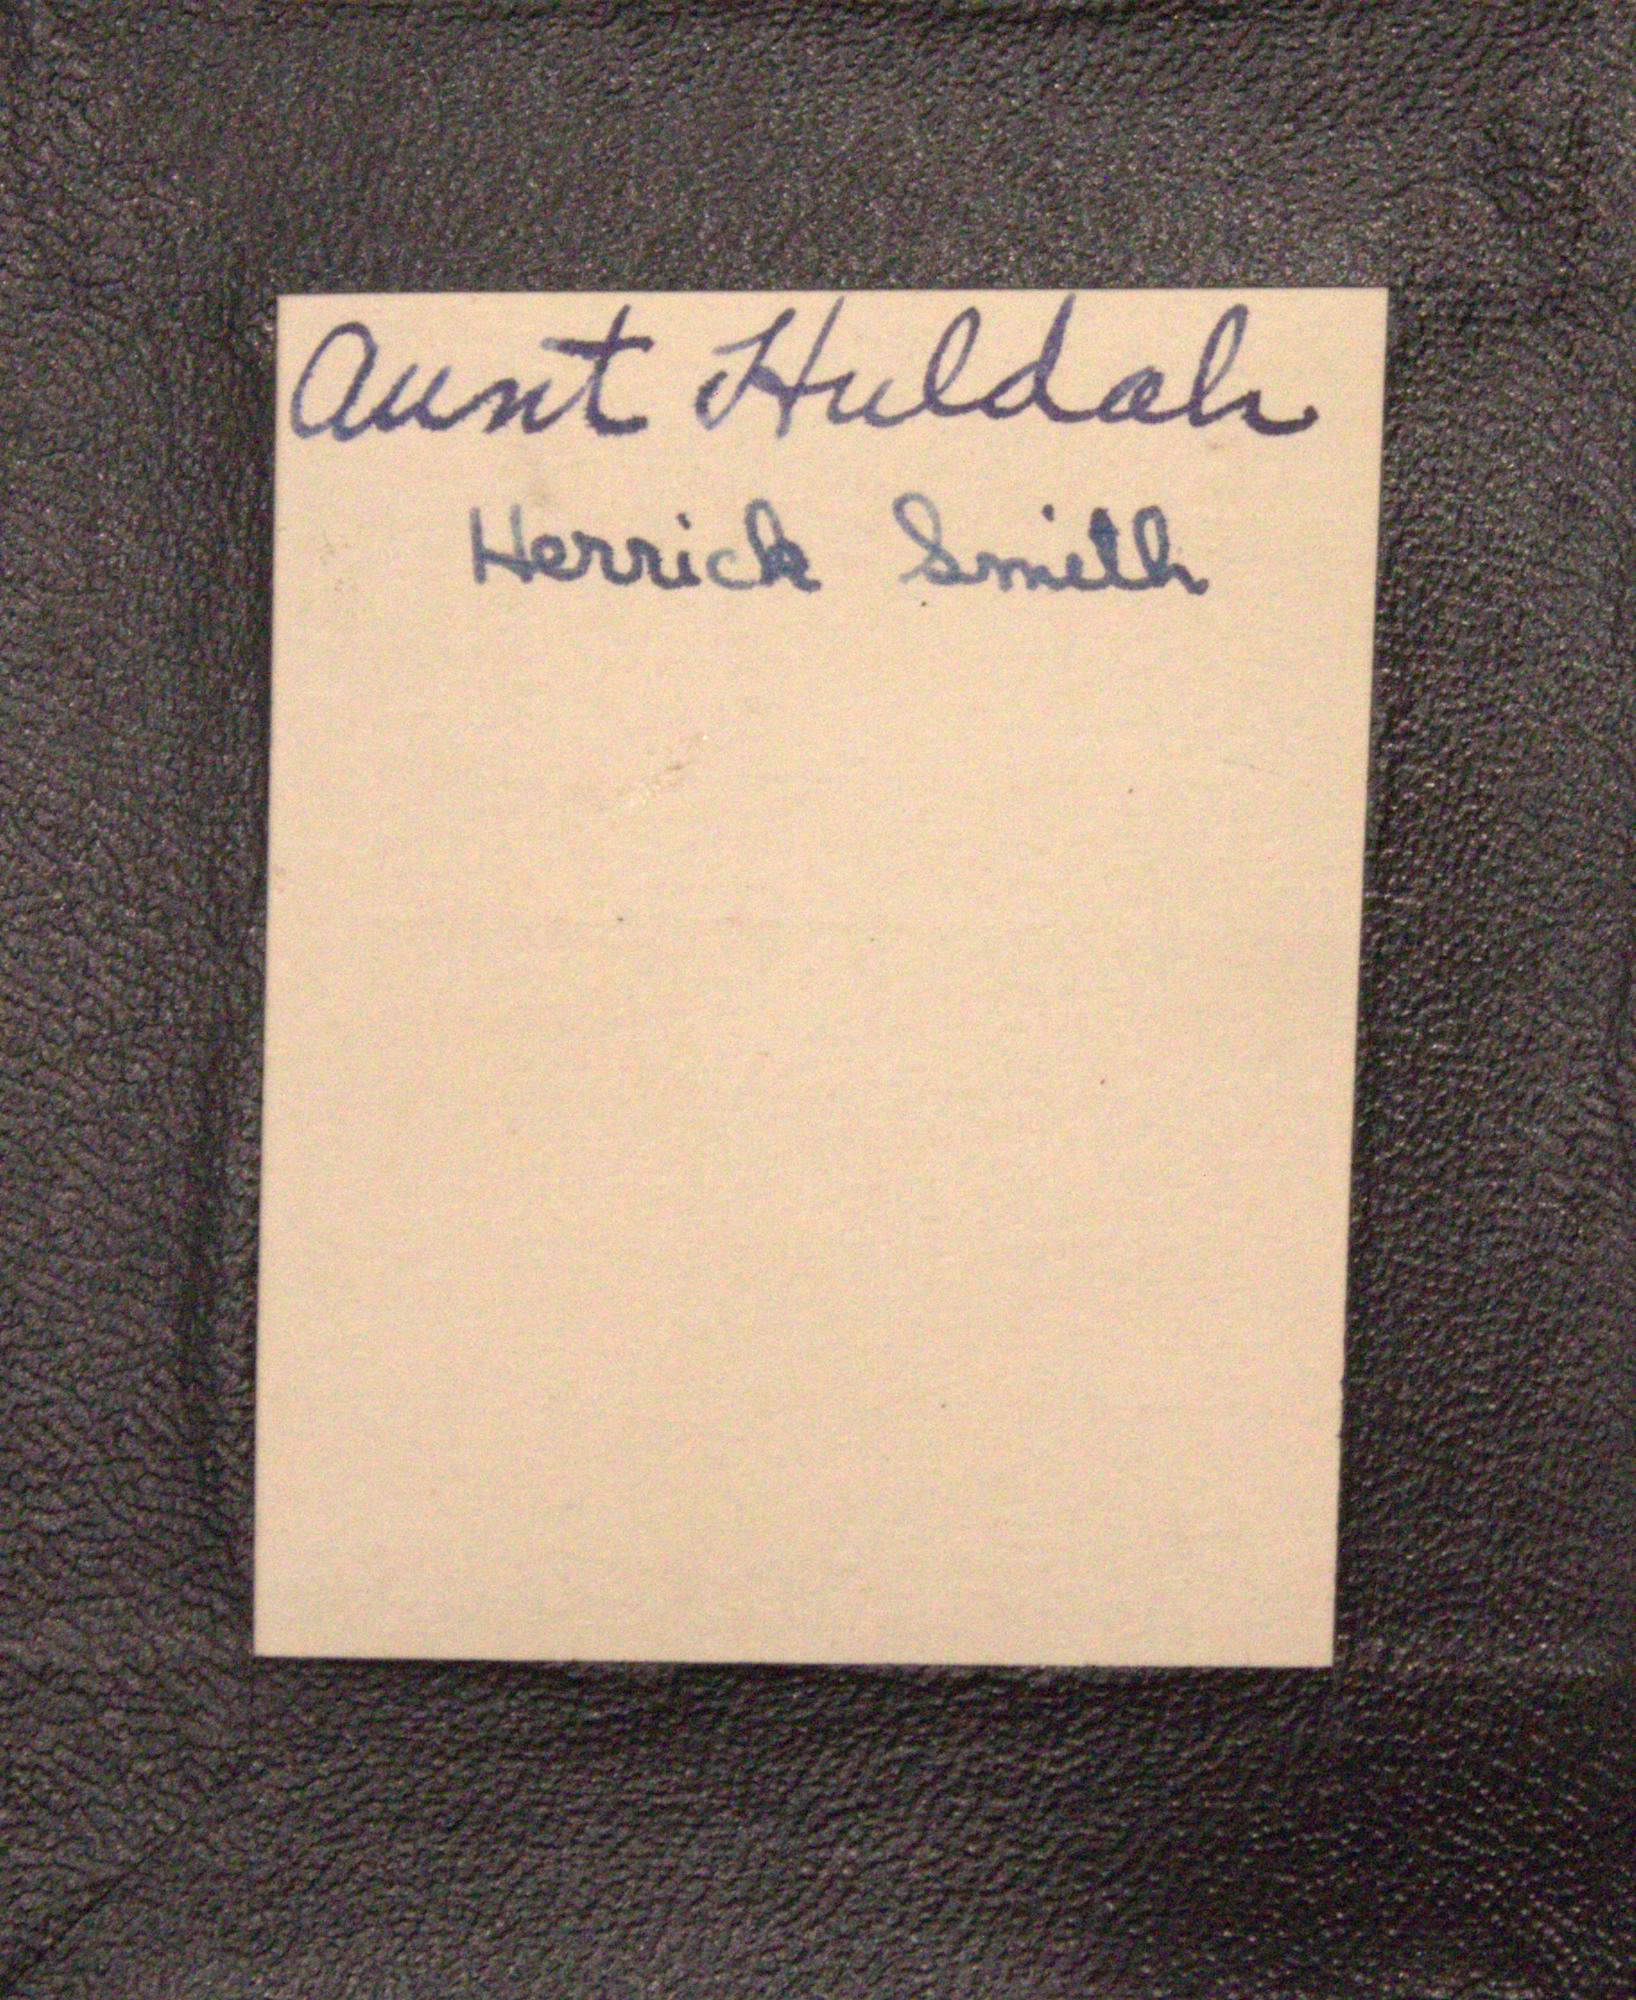 Aunt Huldah
Herrick Smith